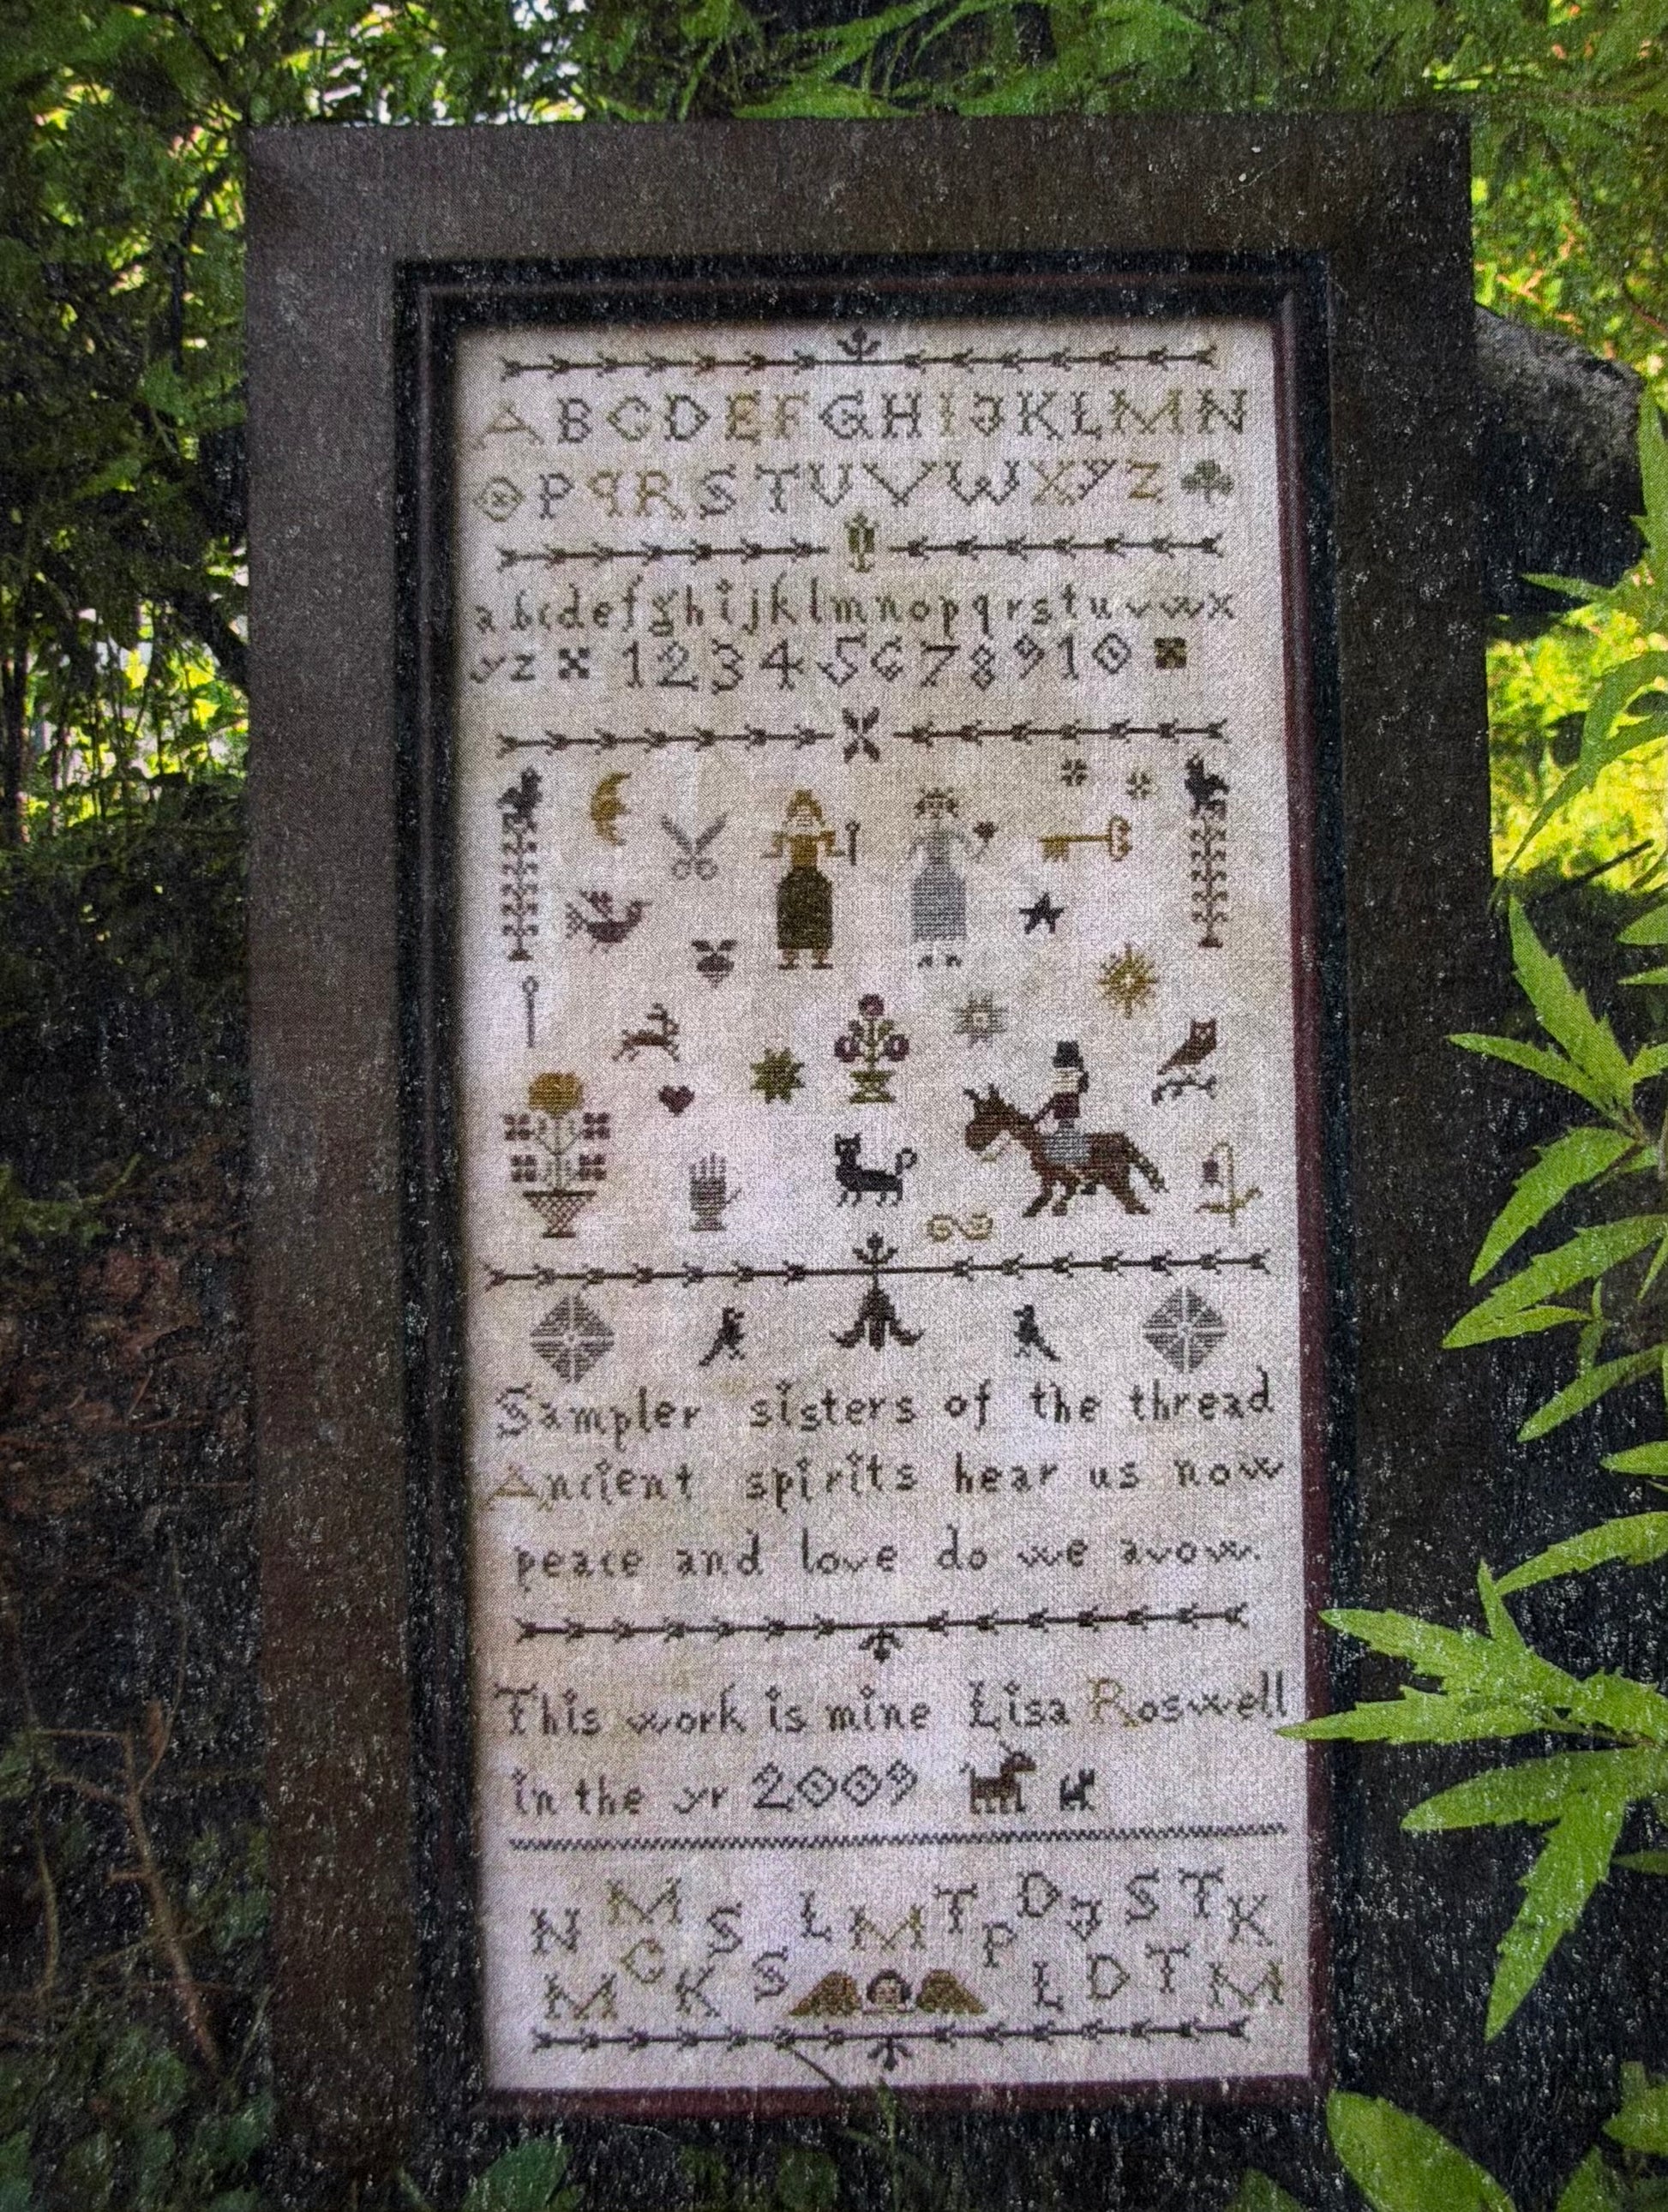 A B C D E F G H I J K L M N
O P q R S T U V W X Y Z
a b c d e f g h i j k l m n o p q r s t u v w x
y z 1 2 3 4 5 6 7 8 9 10
Sampler sisters of the thread
Ancient spirits hear us now
peace and love do we avow.
This work is mine Lisa Roswell
in the yr 2009
N M S L M T P D J S T K
M C K S L D T M